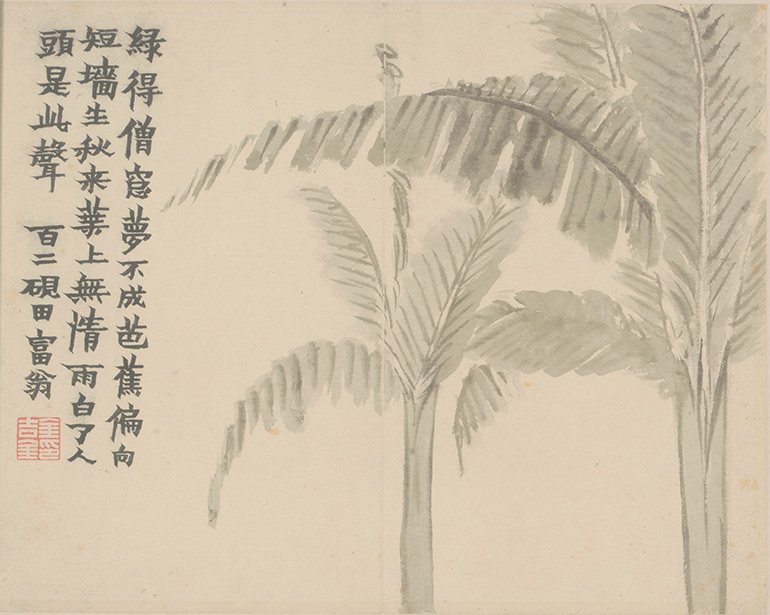 綠得僧窓夢不成芭蕉偏向
短墻生秋来葉上無情雨白了人
頭是此聲 百二硯田富翁